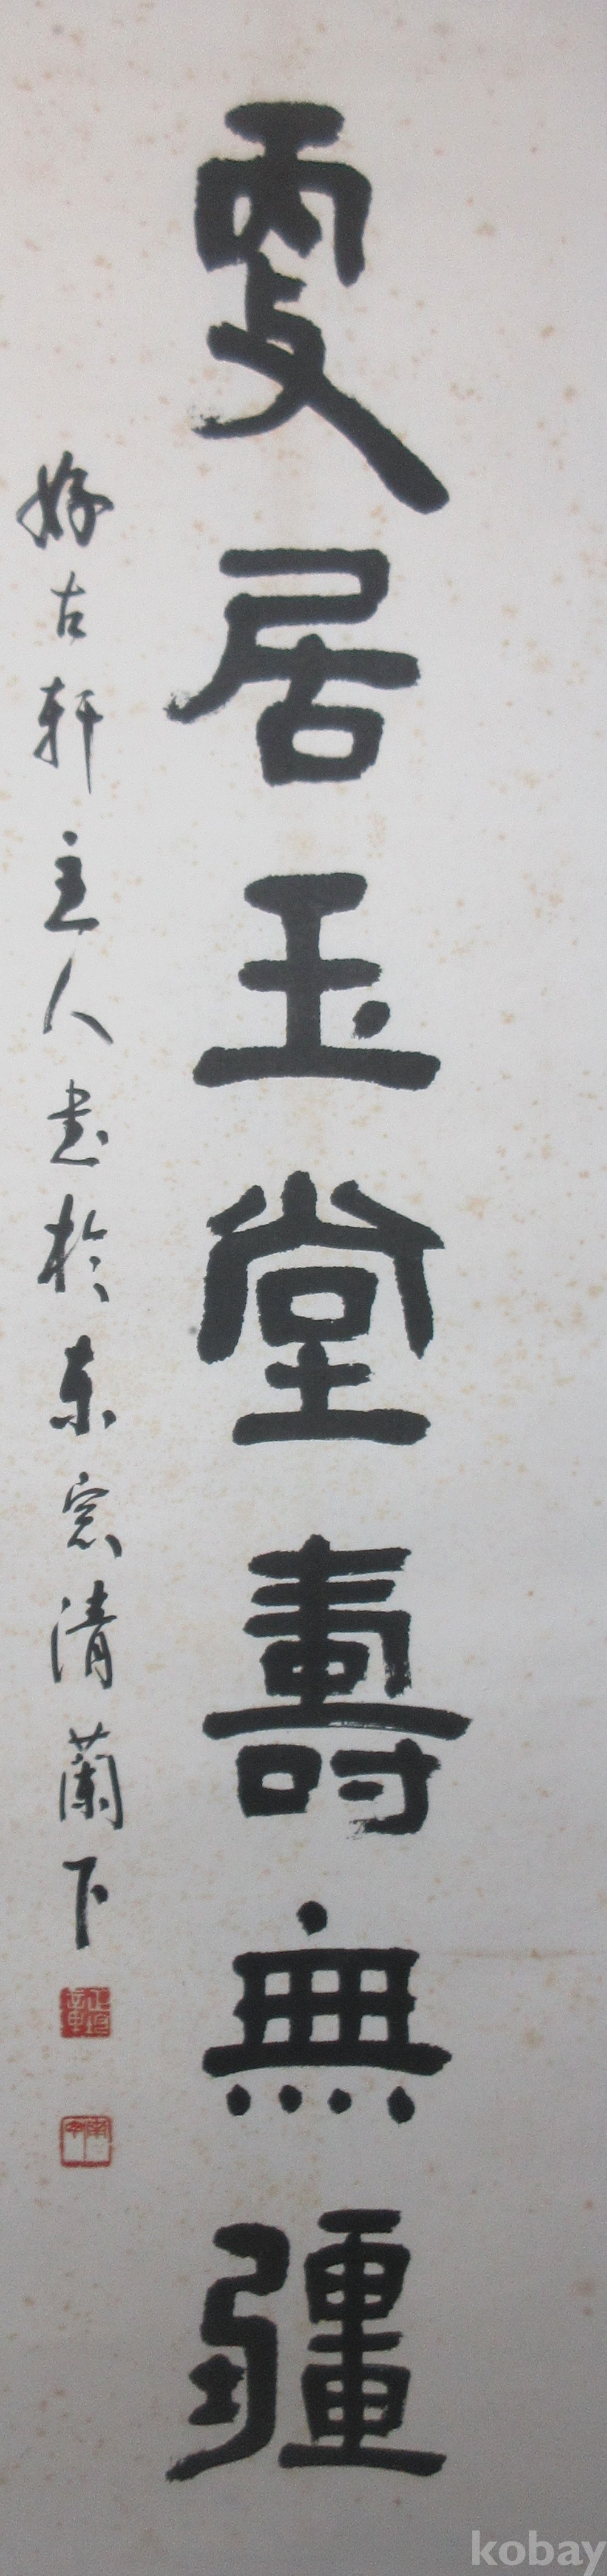 更居玉堂壽無疆
好古軒主人書於東窓清蘭下
kobay